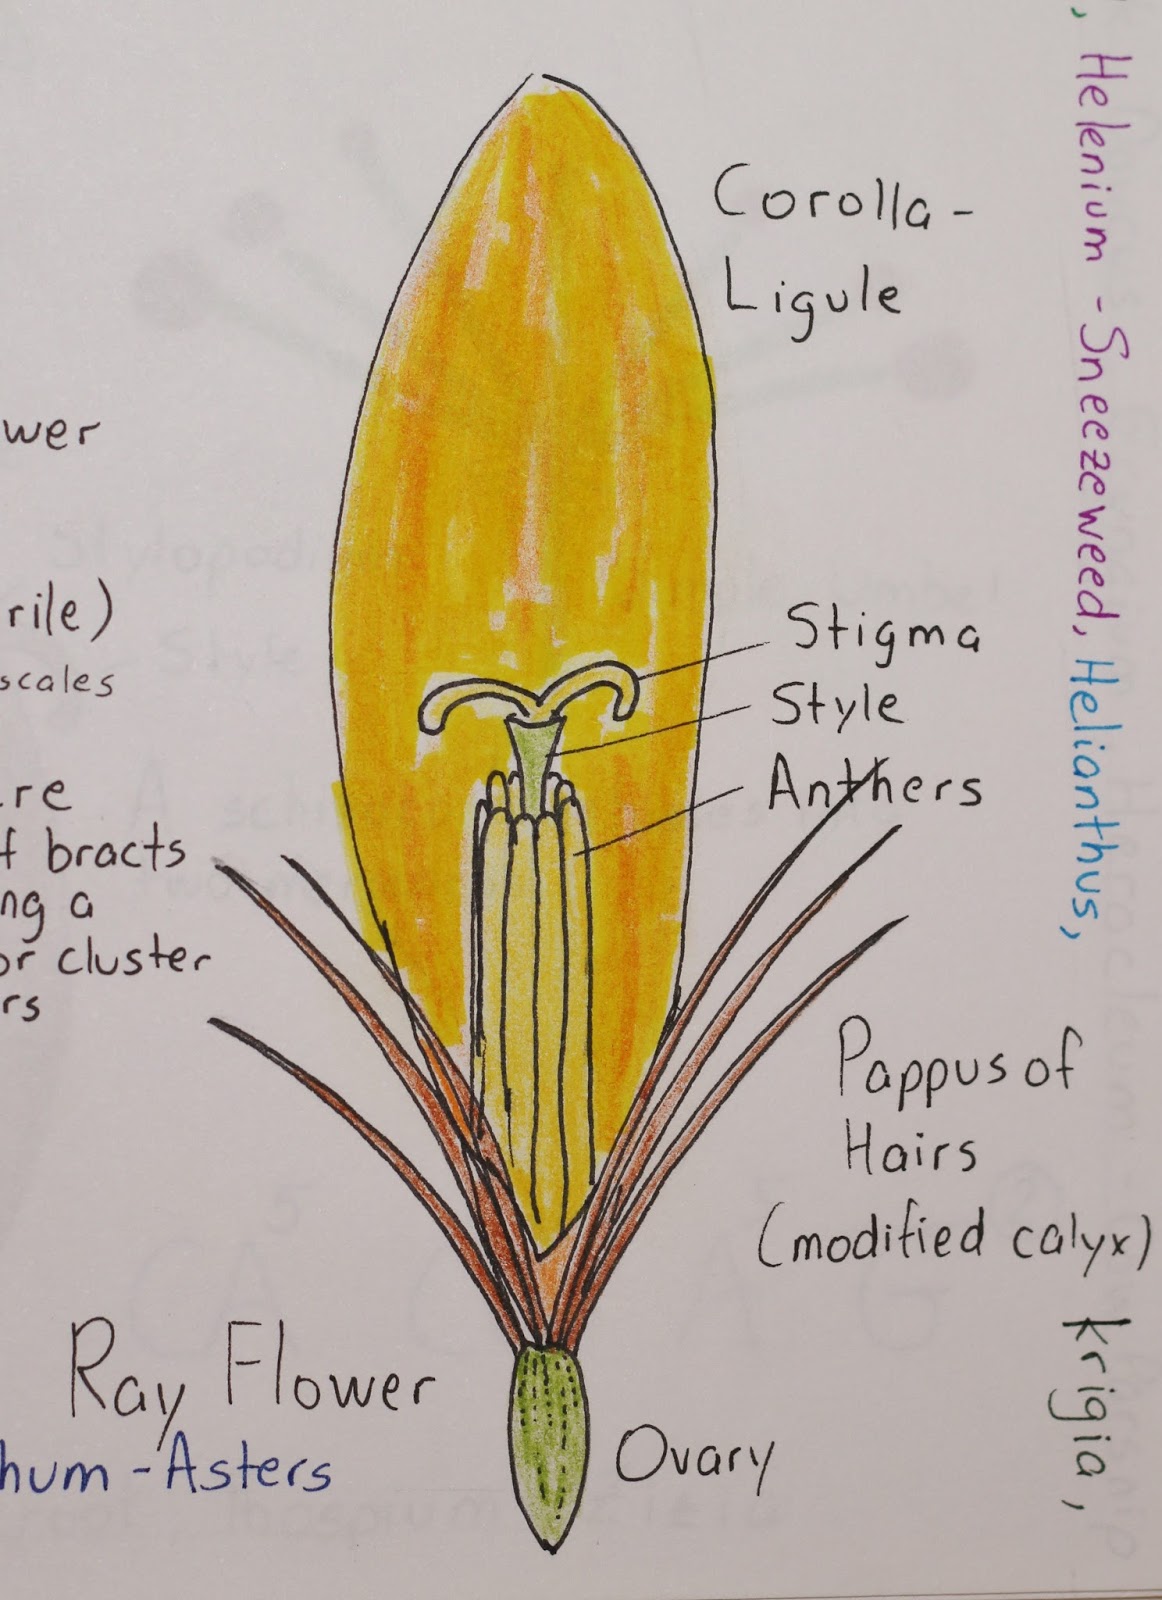 Corolla -
Ligule
wer
rile)
scales
re
f bracts
ng a
or cluster
rs
Stigma
Style
Anthers
Pappus of
Hairs
(modified calyx)
Ray Flower
hum - Asters
Ovary
, Helenium - Sneezeweed, Helianthus,
Krigia,